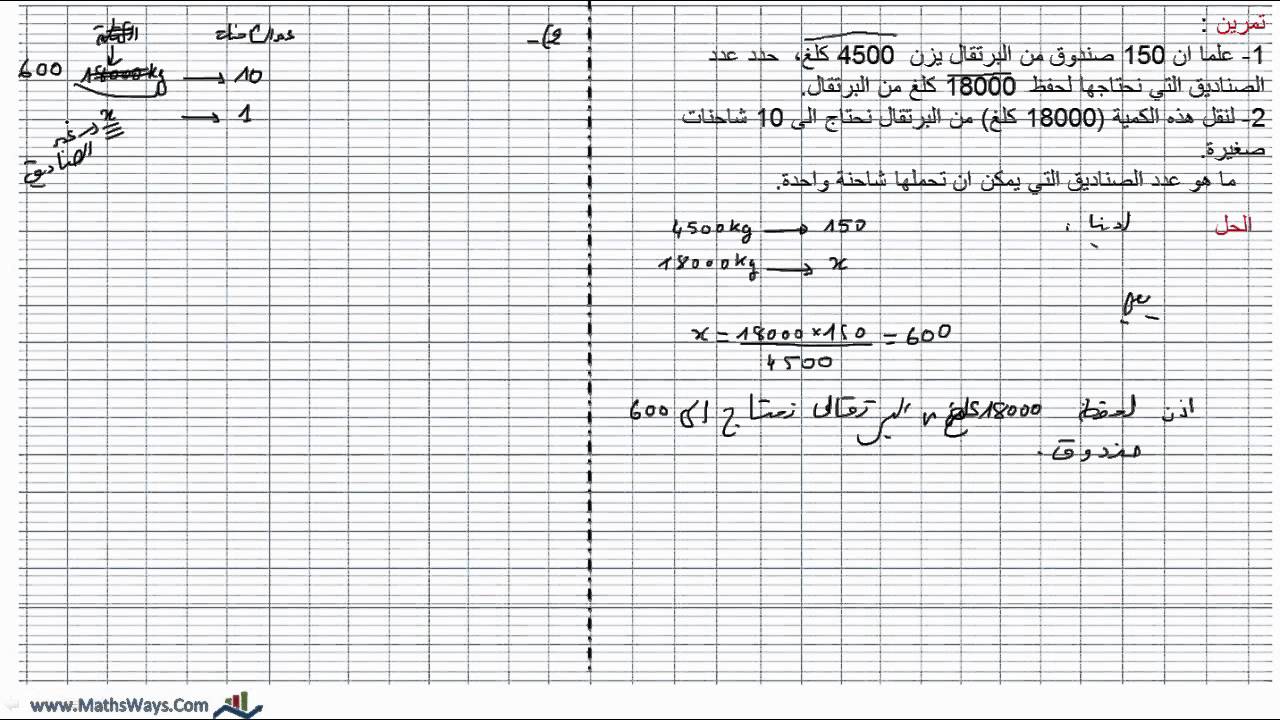 تمرين :
1- علما ان 150 صندوق من البرتقال يزن 4500 كلغ، حدد عدد
الصناديق التي نحتاجها لحفظ 18000 كلغ من البرتقال.
2- لنقل هذه الكمية (18000 كلغ) من البرتقال نحتاج الى 10 شاحنات
صغيرة.
ما هو عدد الصناديق التي يمكن ان تحملها شاحنة واحدة.
الحل لدينا :
4500kg → 150
18000kg → x
x = 18000 × 150 / 4500 = 600
اذن لحفظ 18000 كلغ من البرتقال نحتاج الى 600
صندوق .
2) -
600 18000 kg → 10
x → 1
الصناديق
www.MathsWays.Com